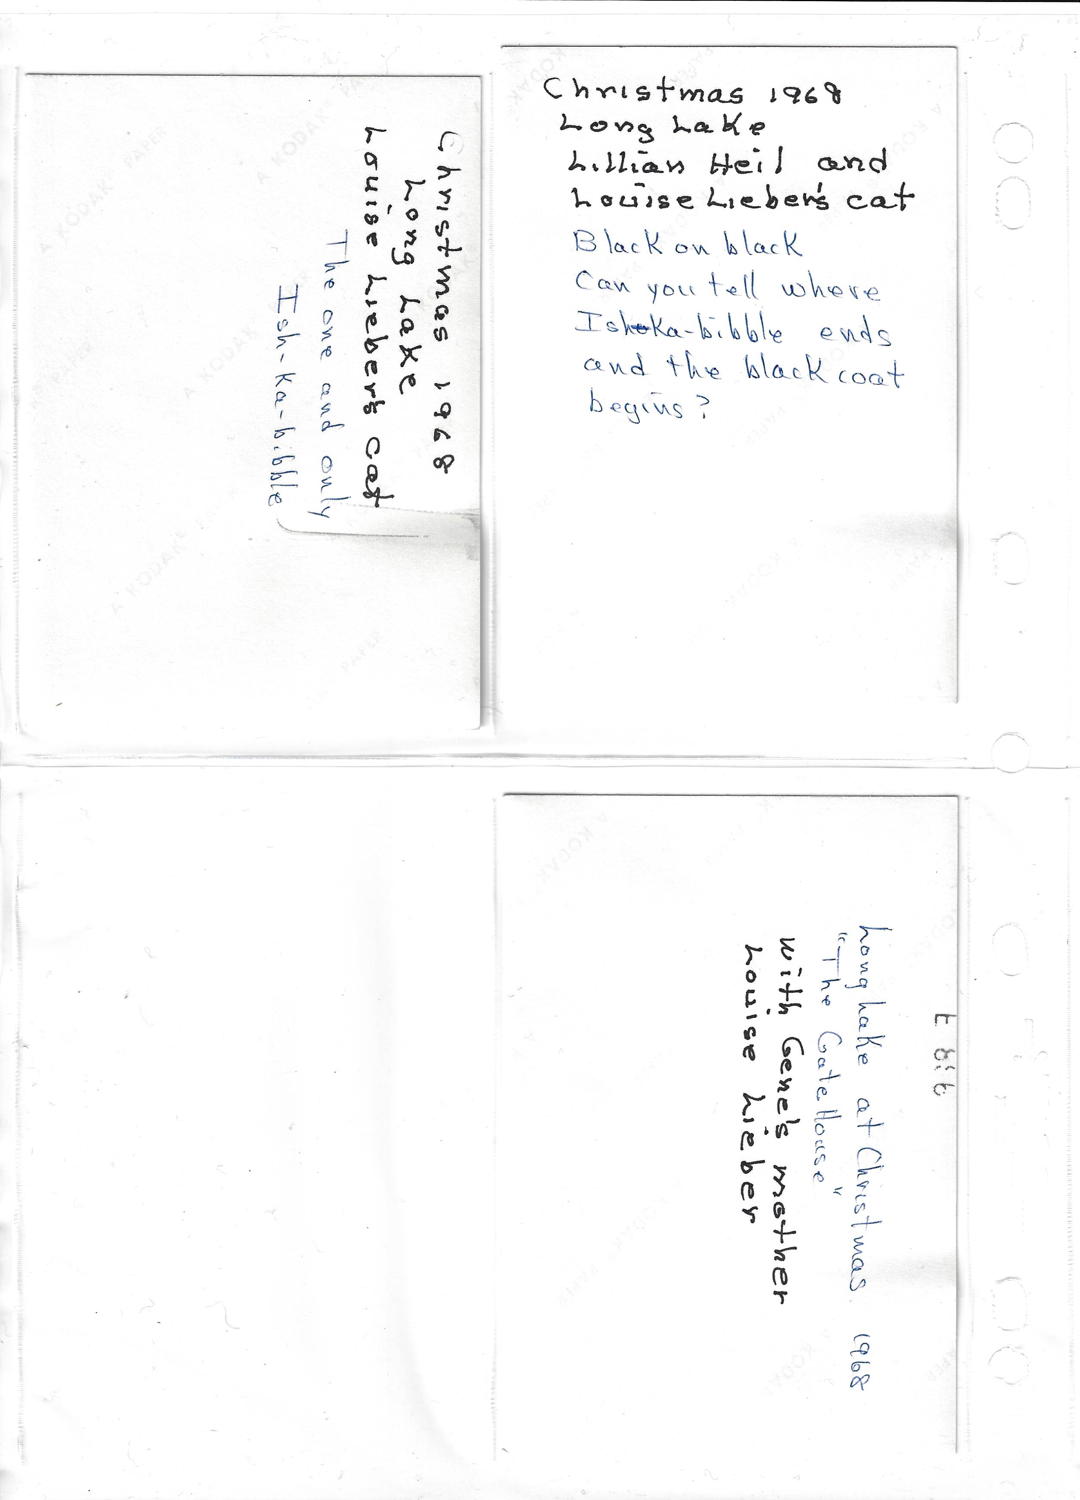 Christmas 1968
Long Lake
Louise Lieber's cat
The one and only
Ish-ka-bibble
Christmas 1968
Long Lake
Lillian Heil and
Louise Lieber's cat
Black on black
Can you tell where
Ish-ka-bibble ends
and the black coat
begins?
Long Lake at Christmas 1968
"The Gate House"
with Gene's mother
Louise Lieber
A KODAK PAPER
A KODAK PAPER
A KODAK
A KODAK
PAPER